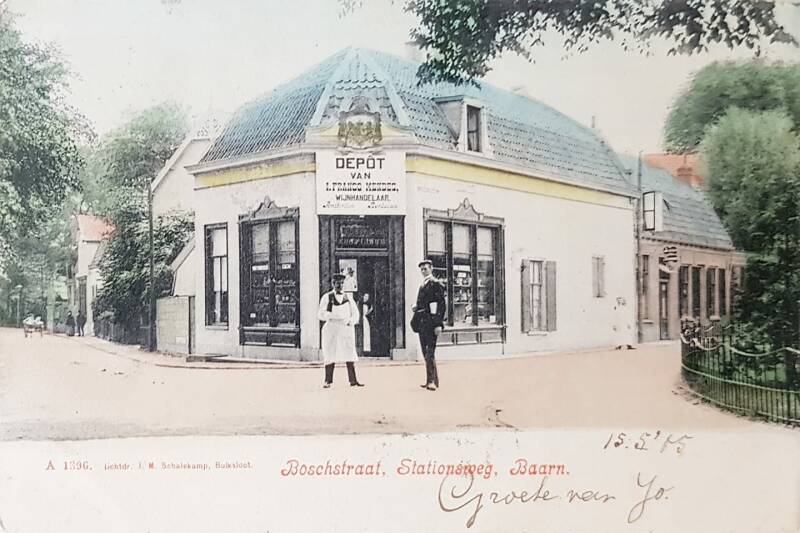 DEPÔT
VAN
I. FRANCO MENDES,
WIJNHANDELAAR,
Amsterdam Bordeaux
A 1396. Lichtdr. J. M. Schalekamp, Buiksloot.
Boschstraat, Stationsweg, Baarn.
15.5'05
Groete van Jo.